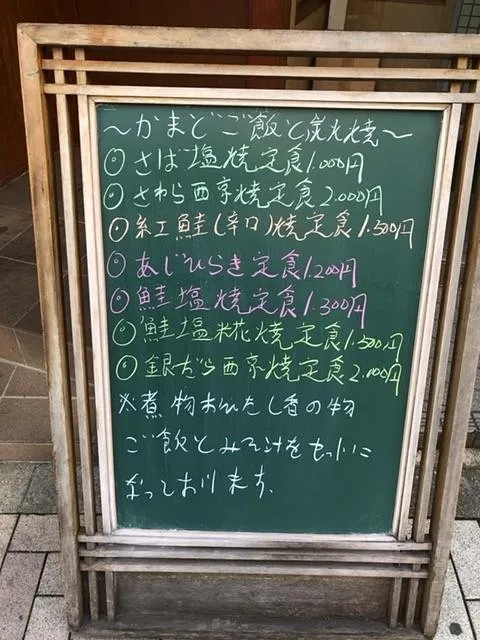 ～かまどご飯と炭火焼～
◎さば塩焼定食1.000円
◎さわら西京焼定食2.000円
◎紅鮭(辛口)焼定食1.500円
◎あじひらき定食1.200円
◎鮭塩焼定食1.300円
◎鮭塩糀焼定食1.500円
◎銀だら西京焼定食2.000円
※煮物おひたし香の物
ご飯とみそ汁をセットに
なっております。